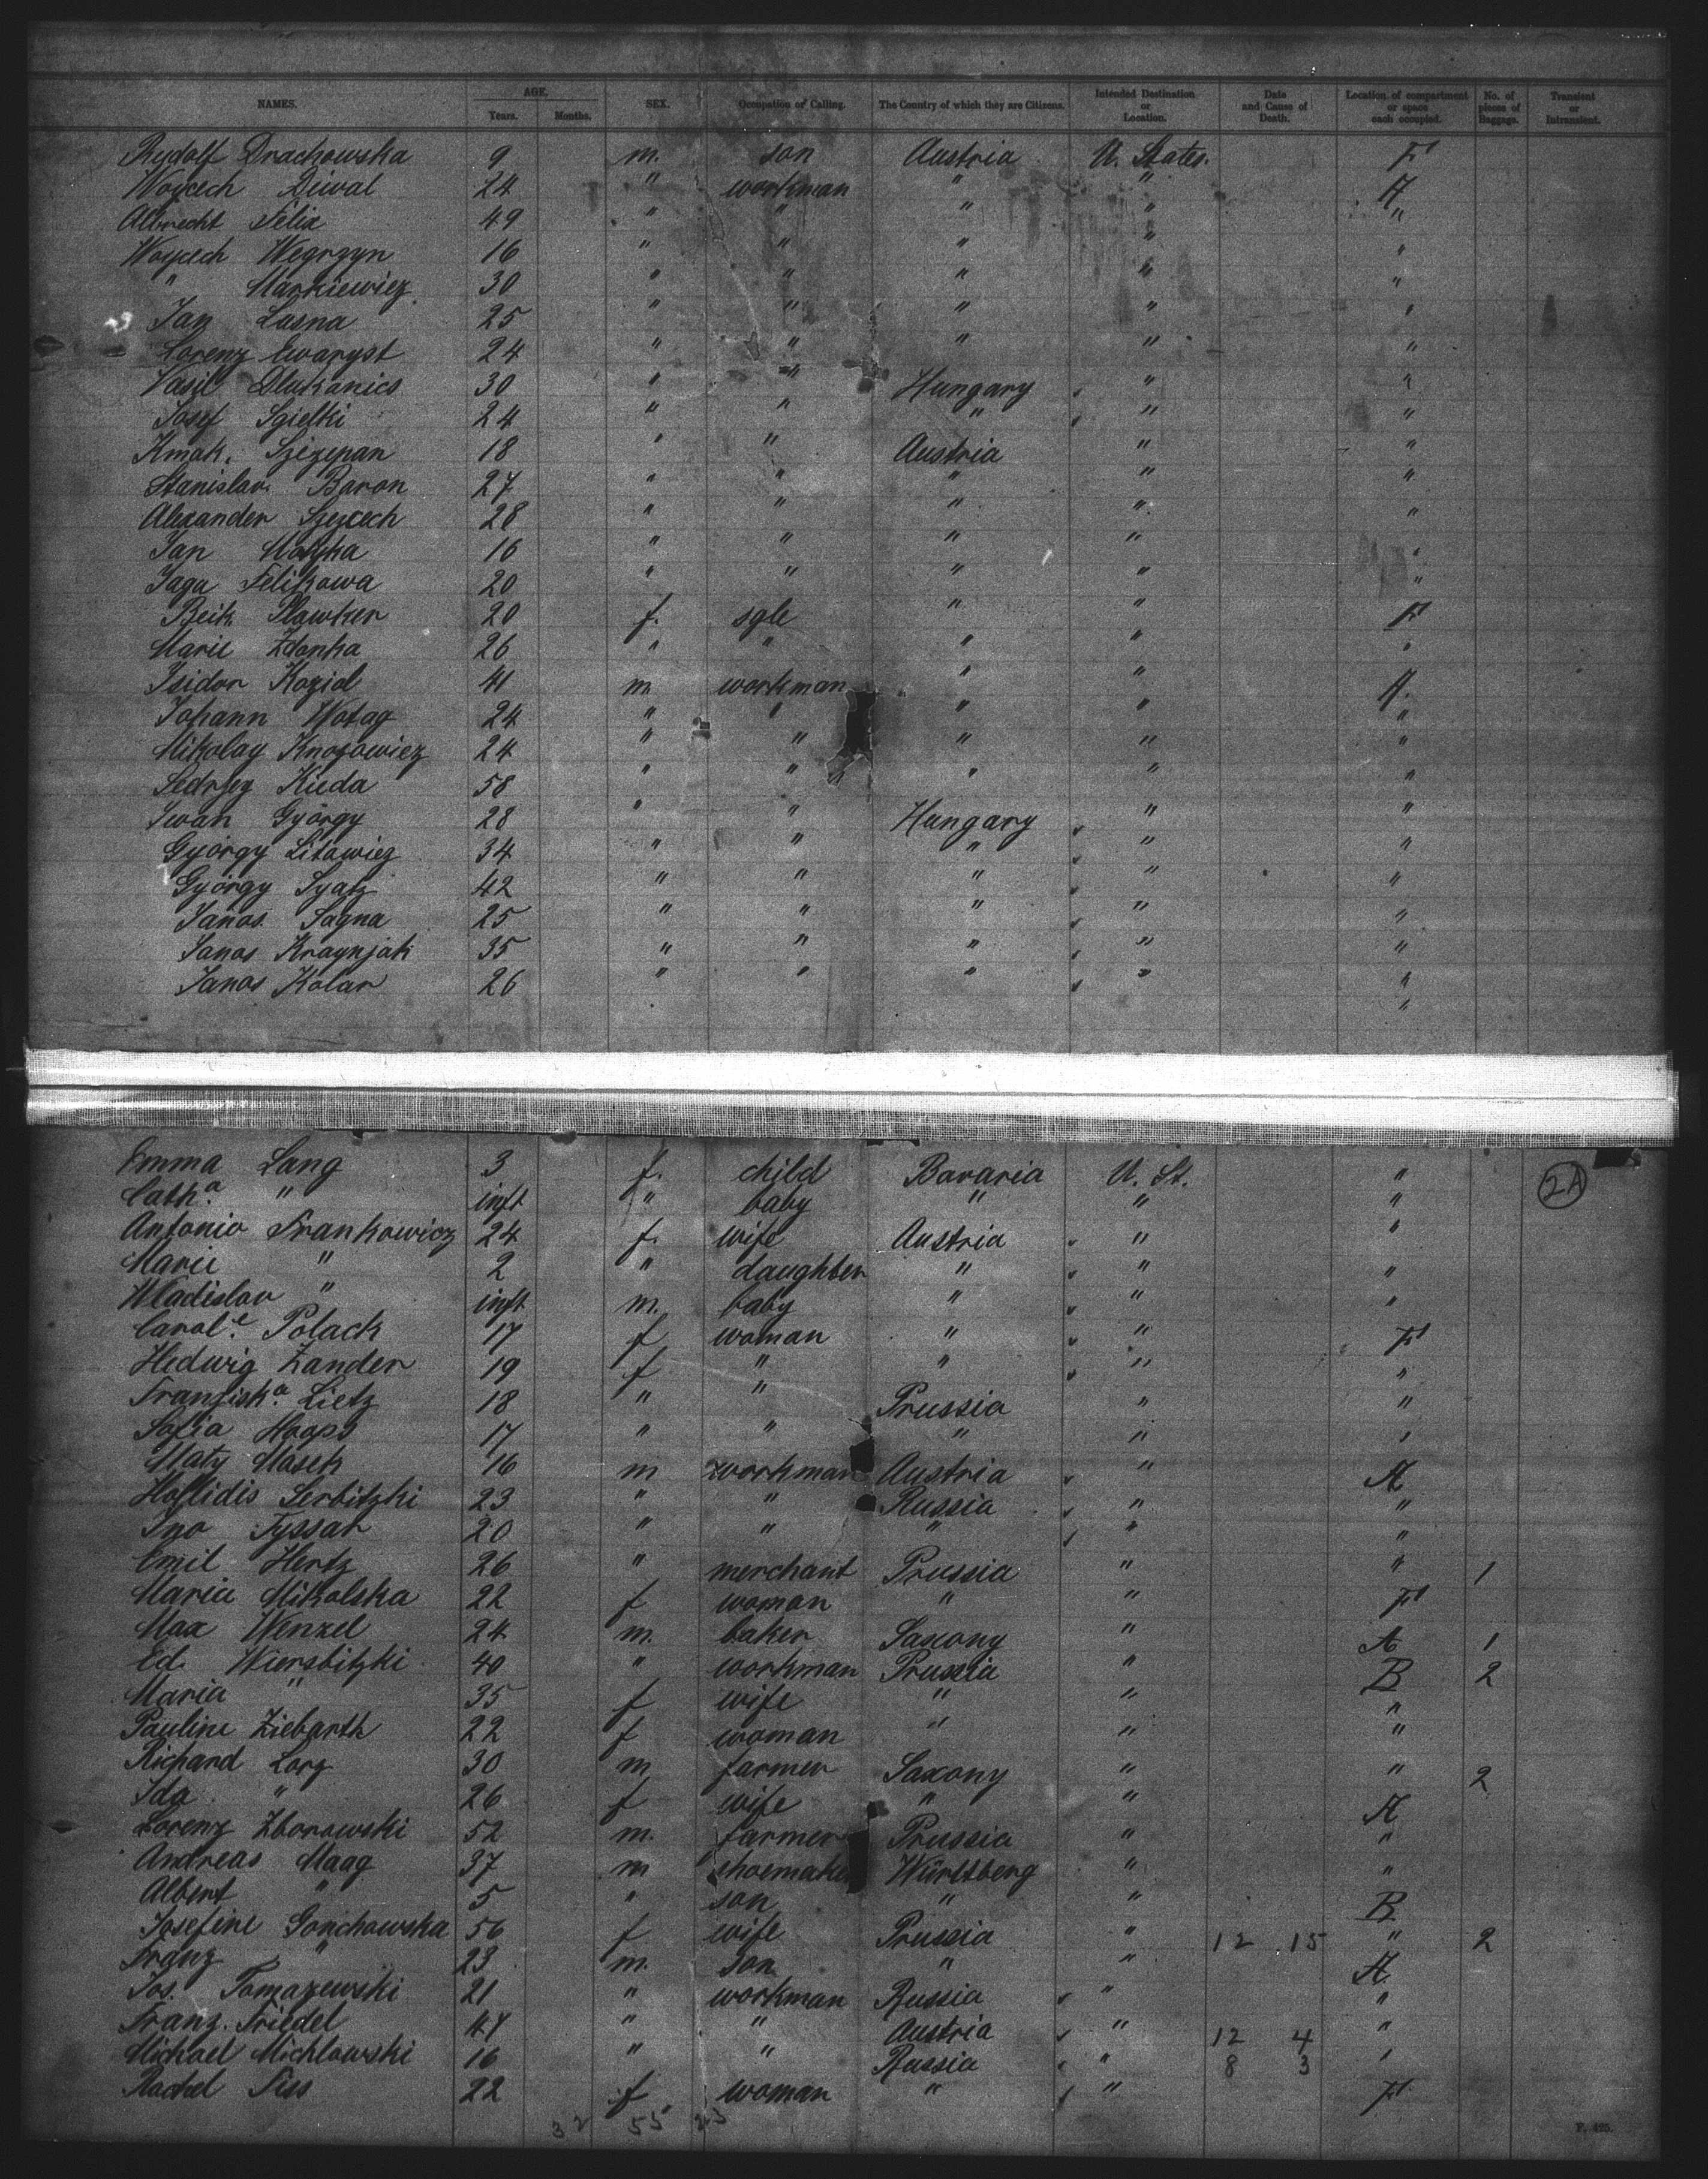 NAMES. AGE. Years. Months. SEX. Occupation or Calling. The Country of which they are Citizens. Intended Destination or Location. Date and Cause of Death. Location of compartment or space each occupied. No. of pieces of Baggage. Transient or Intransient.
Rudolf Drachowska 9 m. son Austria U. States. F
Woycech Diwal 24 " workman " " A
Albrecht Felix 49 " " " " "
Woycech Wegrzyn 16 " " " " "
" Markiewicz 30 " " " " "
Jan Lasna 25 " " " " "
Lorenz Ewaryst 24 " " " " "
Vasil Dlukanics 30 " " Hungary " "
Josef Sgielki 24 " " " " "
Kmak. Szizepan 18 " " Austria " "
Stanislav Baron 27 " " " " "
Alexander Szezcech 28 " " " " "
Jan Motyka 16 " " " " "
Jaga Felikowa 20 " " " " "
Beik Slawker 20 f. sgle " " F
Marie Zdonka 26 " " " " "
Isidor Koziol 41 m workman " " A.
Johann Wotag 24 " " " " "
Mikolay Knozowicz 24 " " " " "
Kuda 58 " " " " "
Iwan György 28 " " Hungary " "
György Litawicz 34 " " " " "
György Syatz 42 " " " " "
Janos Sagna 25 " " " " "
Janos Kraynjak 35 " " " " "
Janos Kolar 26 " " " " "
"
Emma Lang 3 f. child Bavaria U. St. " 2A
Cath.a " inft " baby " " "
Antonio Frankowicz 24 f. wife Austria " "
Marie " 2 " daughter " " "
Wladislav " inft m. baby " " "
Carol.e Polack 17 f woman " " F
Hedwig Zander 19 f " " " "
Franzisk.a Lietz 18 " " Prussia " "
Sofia Hoops 17 " " " " "
Maty Masek 16 m workman Austria " A
Serbitzki 23 " " Russia " "
Ino Tyssar 20 " " " " "
Emil Hertz 26 " merchant Prussia " " 1
Maria Mikolska 22 f woman " " F
Max Wenzel 24 m. baker Saxony " A 1
Ed. Wiersbitzki 40 " workman Prussia " B 2
Maria " 35 f wife " " "
Pauline Ziebarth 22 f woman " " "
Richard Lorz 30 m farmer Saxony " " 2
Ida " 26 f wife " " A
Lorenz Zborowski 52 m. farmer Prussia " "
Andreas Maag 37 m shoemaker Württberg " "
Albert " 5 " son " " B
Josefine Gonchowska 56 f wife Prussia " 12 15 " 2
Franz " 23 m. son " " A.
Jos. Tomazewski 21 " workman Russia " "
Franz. Friedel 47 " " Austria " 12 4 "
Michael Michlowski 16 " " Russia " 8 3 "
Rachel Fiss 22 f woman " " F
32 55 23
F. 425.